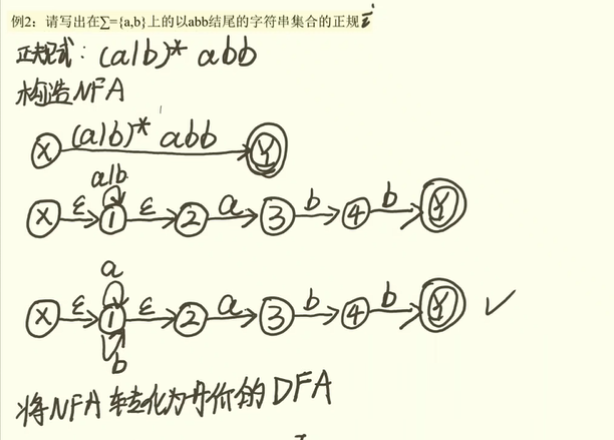 例2：请写出在∑={a,b}上的以abb结尾的字符串集合的正规式
正规式：(a|b)* abb
构造NFA
X (a|b)* abb Y
a|b
X ε 1 ε 2 a 3 b 4 b Y
a
X ε 1 ε 2 a 3 b 4 b Y ✓
b
将NFA转化为等价的DFA